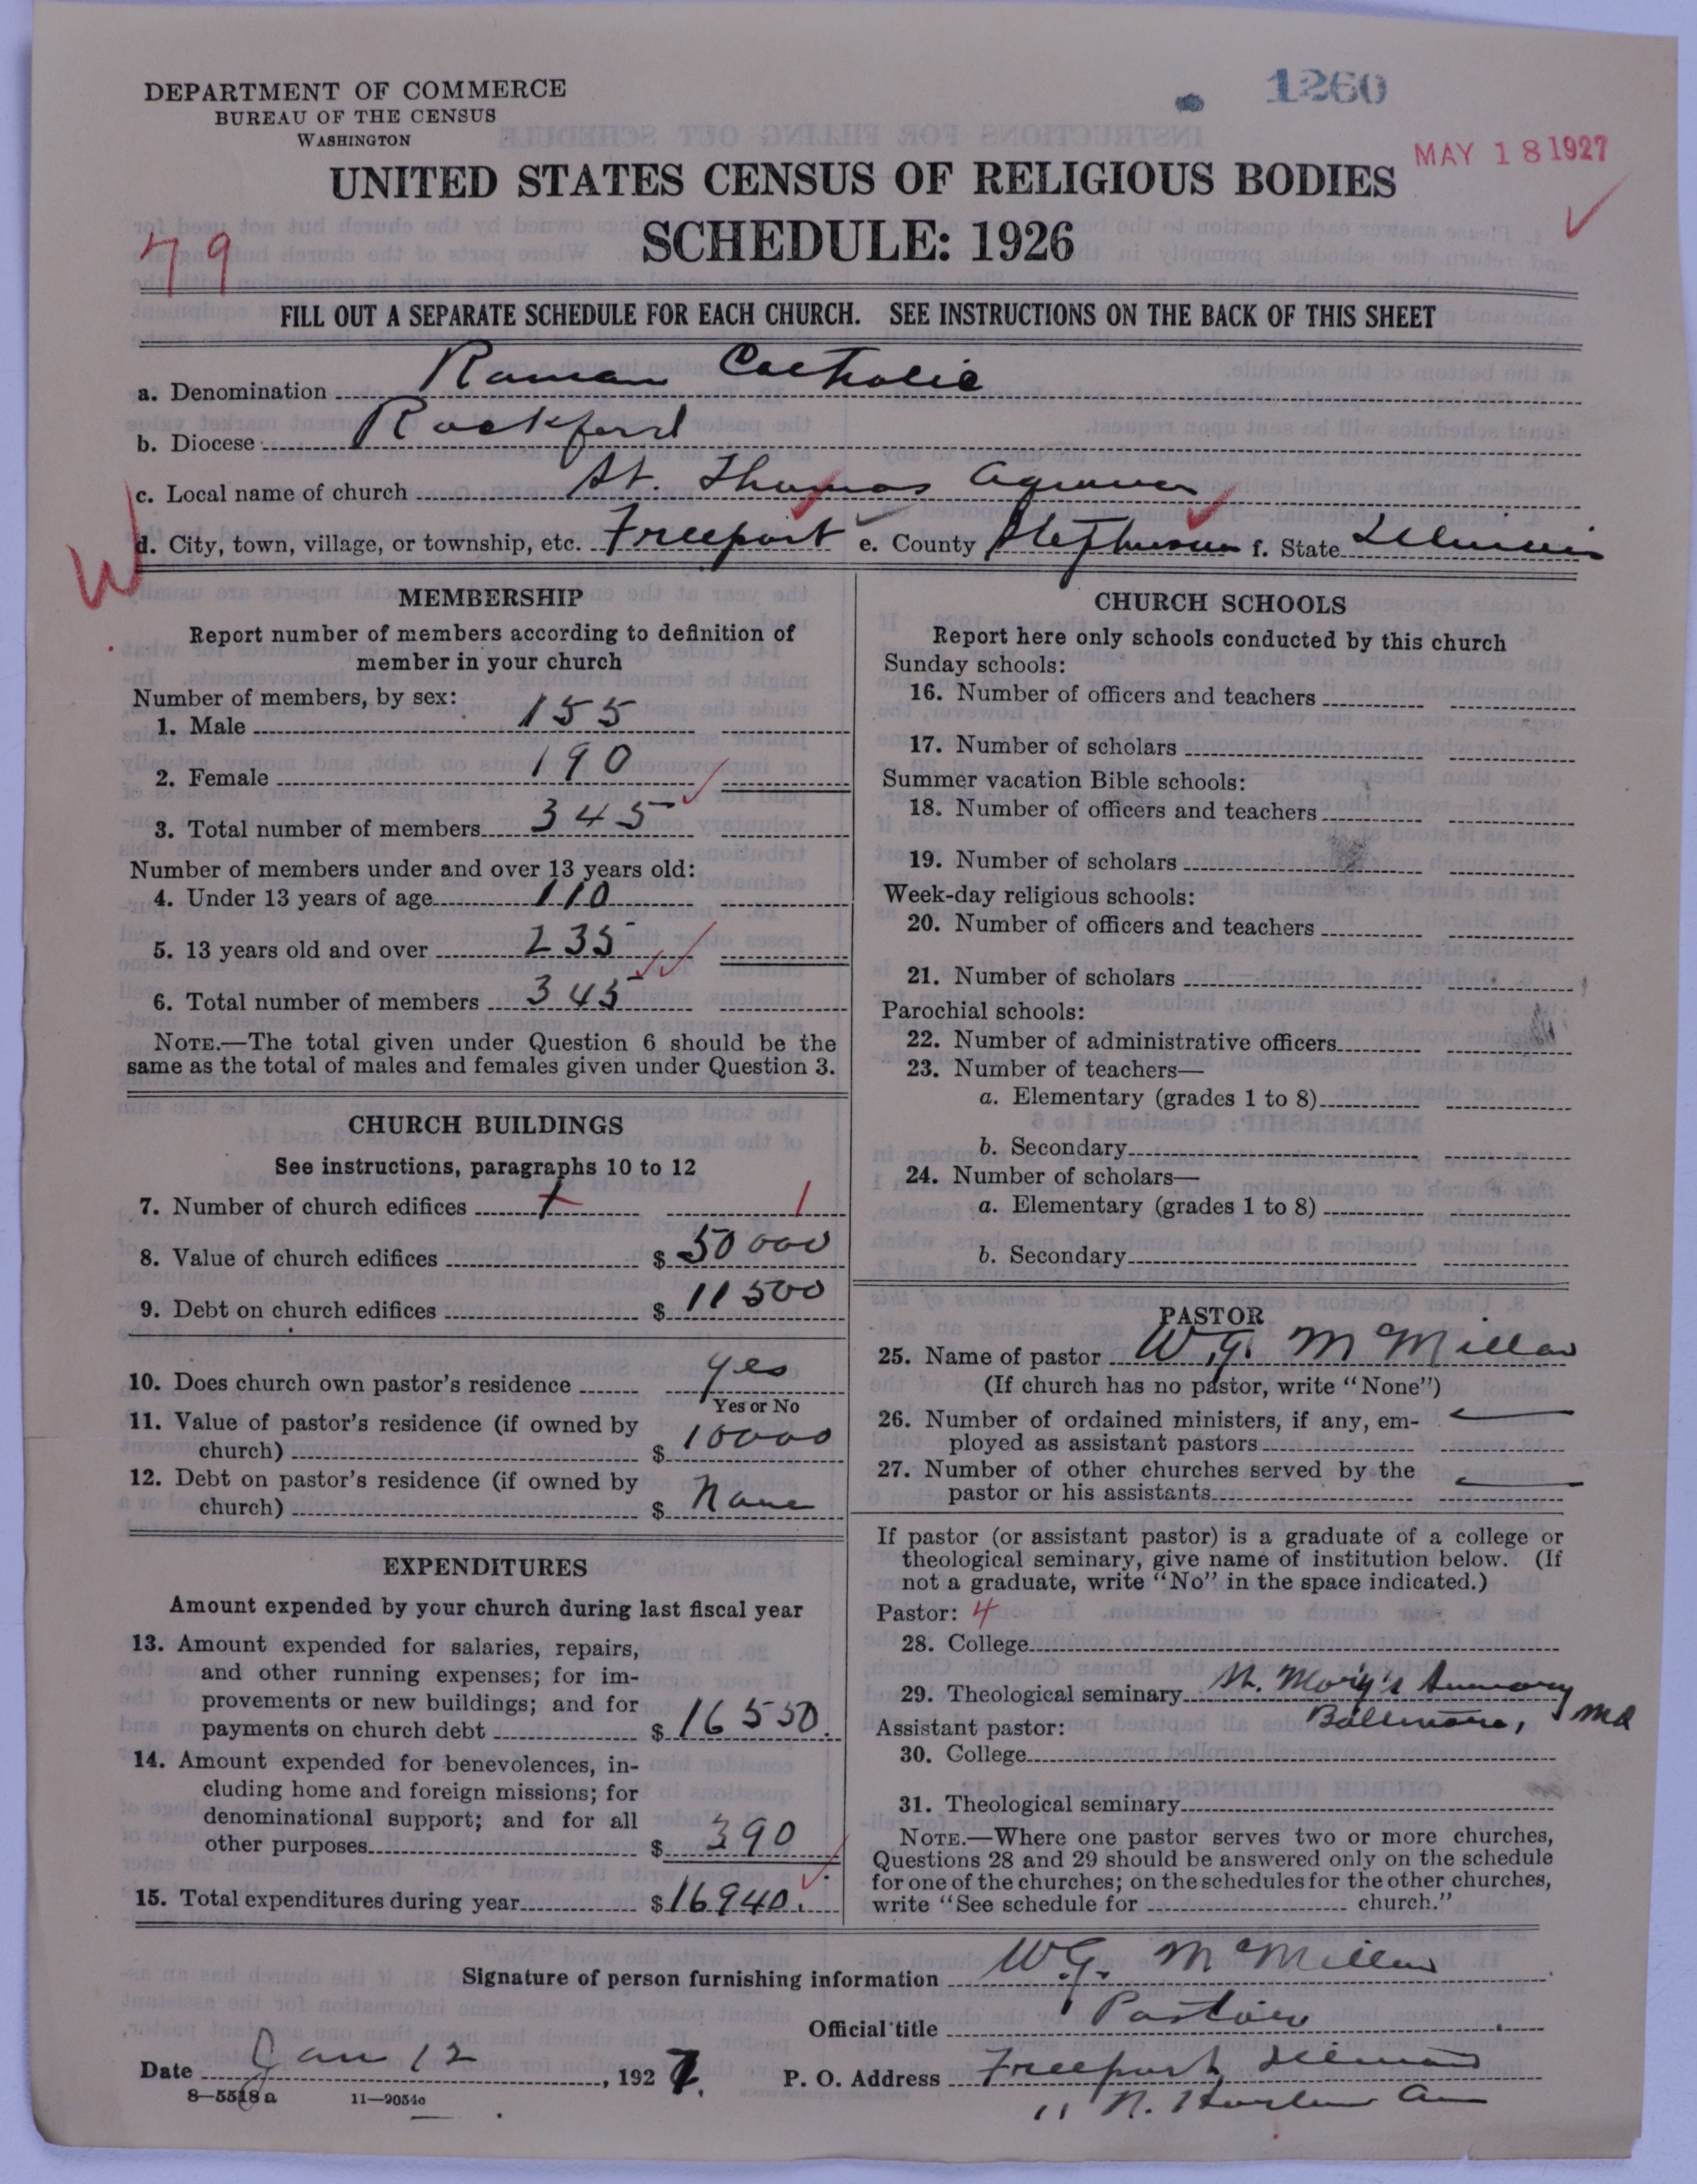 1260
DEPARTMENT OF COMMERCE
BUREAU OF THE CENSUS
WASHINGTON
MAY 18 1927
UNITED STATES CENSUS OF RELIGIOUS BODIES
SCHEDULE: 1926
79
FILL OUT A SEPARATE SCHEDULE FOR EACH CHURCH. SEE INSTRUCTIONS ON THE BACK OF THIS SHEET
a. Denomination Roman Catholic
b. Diocese Rockford
c. Local name of church St. Thomas Aquinas
d. City, town, village, or township, etc. Freeport e. County Stephenson f. State Illinois
W
MEMBERSHIP
Report number of members according to definition of
member in your church
Number of members, by sex:
1. Male 155
2. Female 190
3. Total number of members 345
Number of members under and over 13 years old:
4. Under 13 years of age 110
5. 13 years old and over 235
6. Total number of members 345
NOTE.—The total given under Question 6 should be the
same as the total of males and females given under Question 3.
CHURCH BUILDINGS
See instructions, paragraphs 10 to 12
7. Number of church edifices 1 1
8. Value of church edifices $ 50000
9. Debt on church edifices $ 11500
10. Does church own pastor's residence yes
Yes or No
11. Value of pastor's residence (if owned by
church) $ 10000
12. Debt on pastor's residence (if owned by
church) $ None
EXPENDITURES
Amount expended by your church during last fiscal year
13. Amount expended for salaries, repairs,
and other running expenses; for im-
provements or new buildings; and for
payments on church debt $ 16550.
14. Amount expended for benevolences, in-
cluding home and foreign missions; for
denominational support; and for all
other purposes $ 390
15. Total expenditures during year $ 16940.
CHURCH SCHOOLS
Report here only schools conducted by this church
Sunday schools:
16. Number of officers and teachers
17. Number of scholars
Summer vacation Bible schools:
18. Number of officers and teachers
19. Number of scholars
Week-day religious schools:
20. Number of officers and teachers
21. Number of scholars
Parochial schools:
22. Number of administrative officers
23. Number of teachers—
a. Elementary (grades 1 to 8)
b. Secondary
24. Number of scholars—
a. Elementary (grades 1 to 8)
b. Secondary
PASTOR
25. Name of pastor W. G. McMillan
(If church has no pastor, write "None")
26. Number of ordained ministers, if any, em-
ployed as assistant pastors
27. Number of other churches served by the
pastor or his assistants
If pastor (or assistant pastor) is a graduate of a college or
theological seminary, give name of institution below. (If
not a graduate, write "No" in the space indicated.)
Pastor: 4
28. College
29. Theological seminary St. Mary's Seminary
Baltimore, Md
Assistant pastor:
30. College
31. Theological seminary
NOTE.—Where one pastor serves two or more churches,
Questions 28 and 29 should be answered only on the schedule
for one of the churches; on the schedules for the other churches,
write "See schedule for church."
Signature of person furnishing information W.G. McMillan
Official title Pastor
Date Jan 12, 1927. P. O. Address Freeport, Illinois
8—5518 a 11—9054a
11 N. Harlem Av